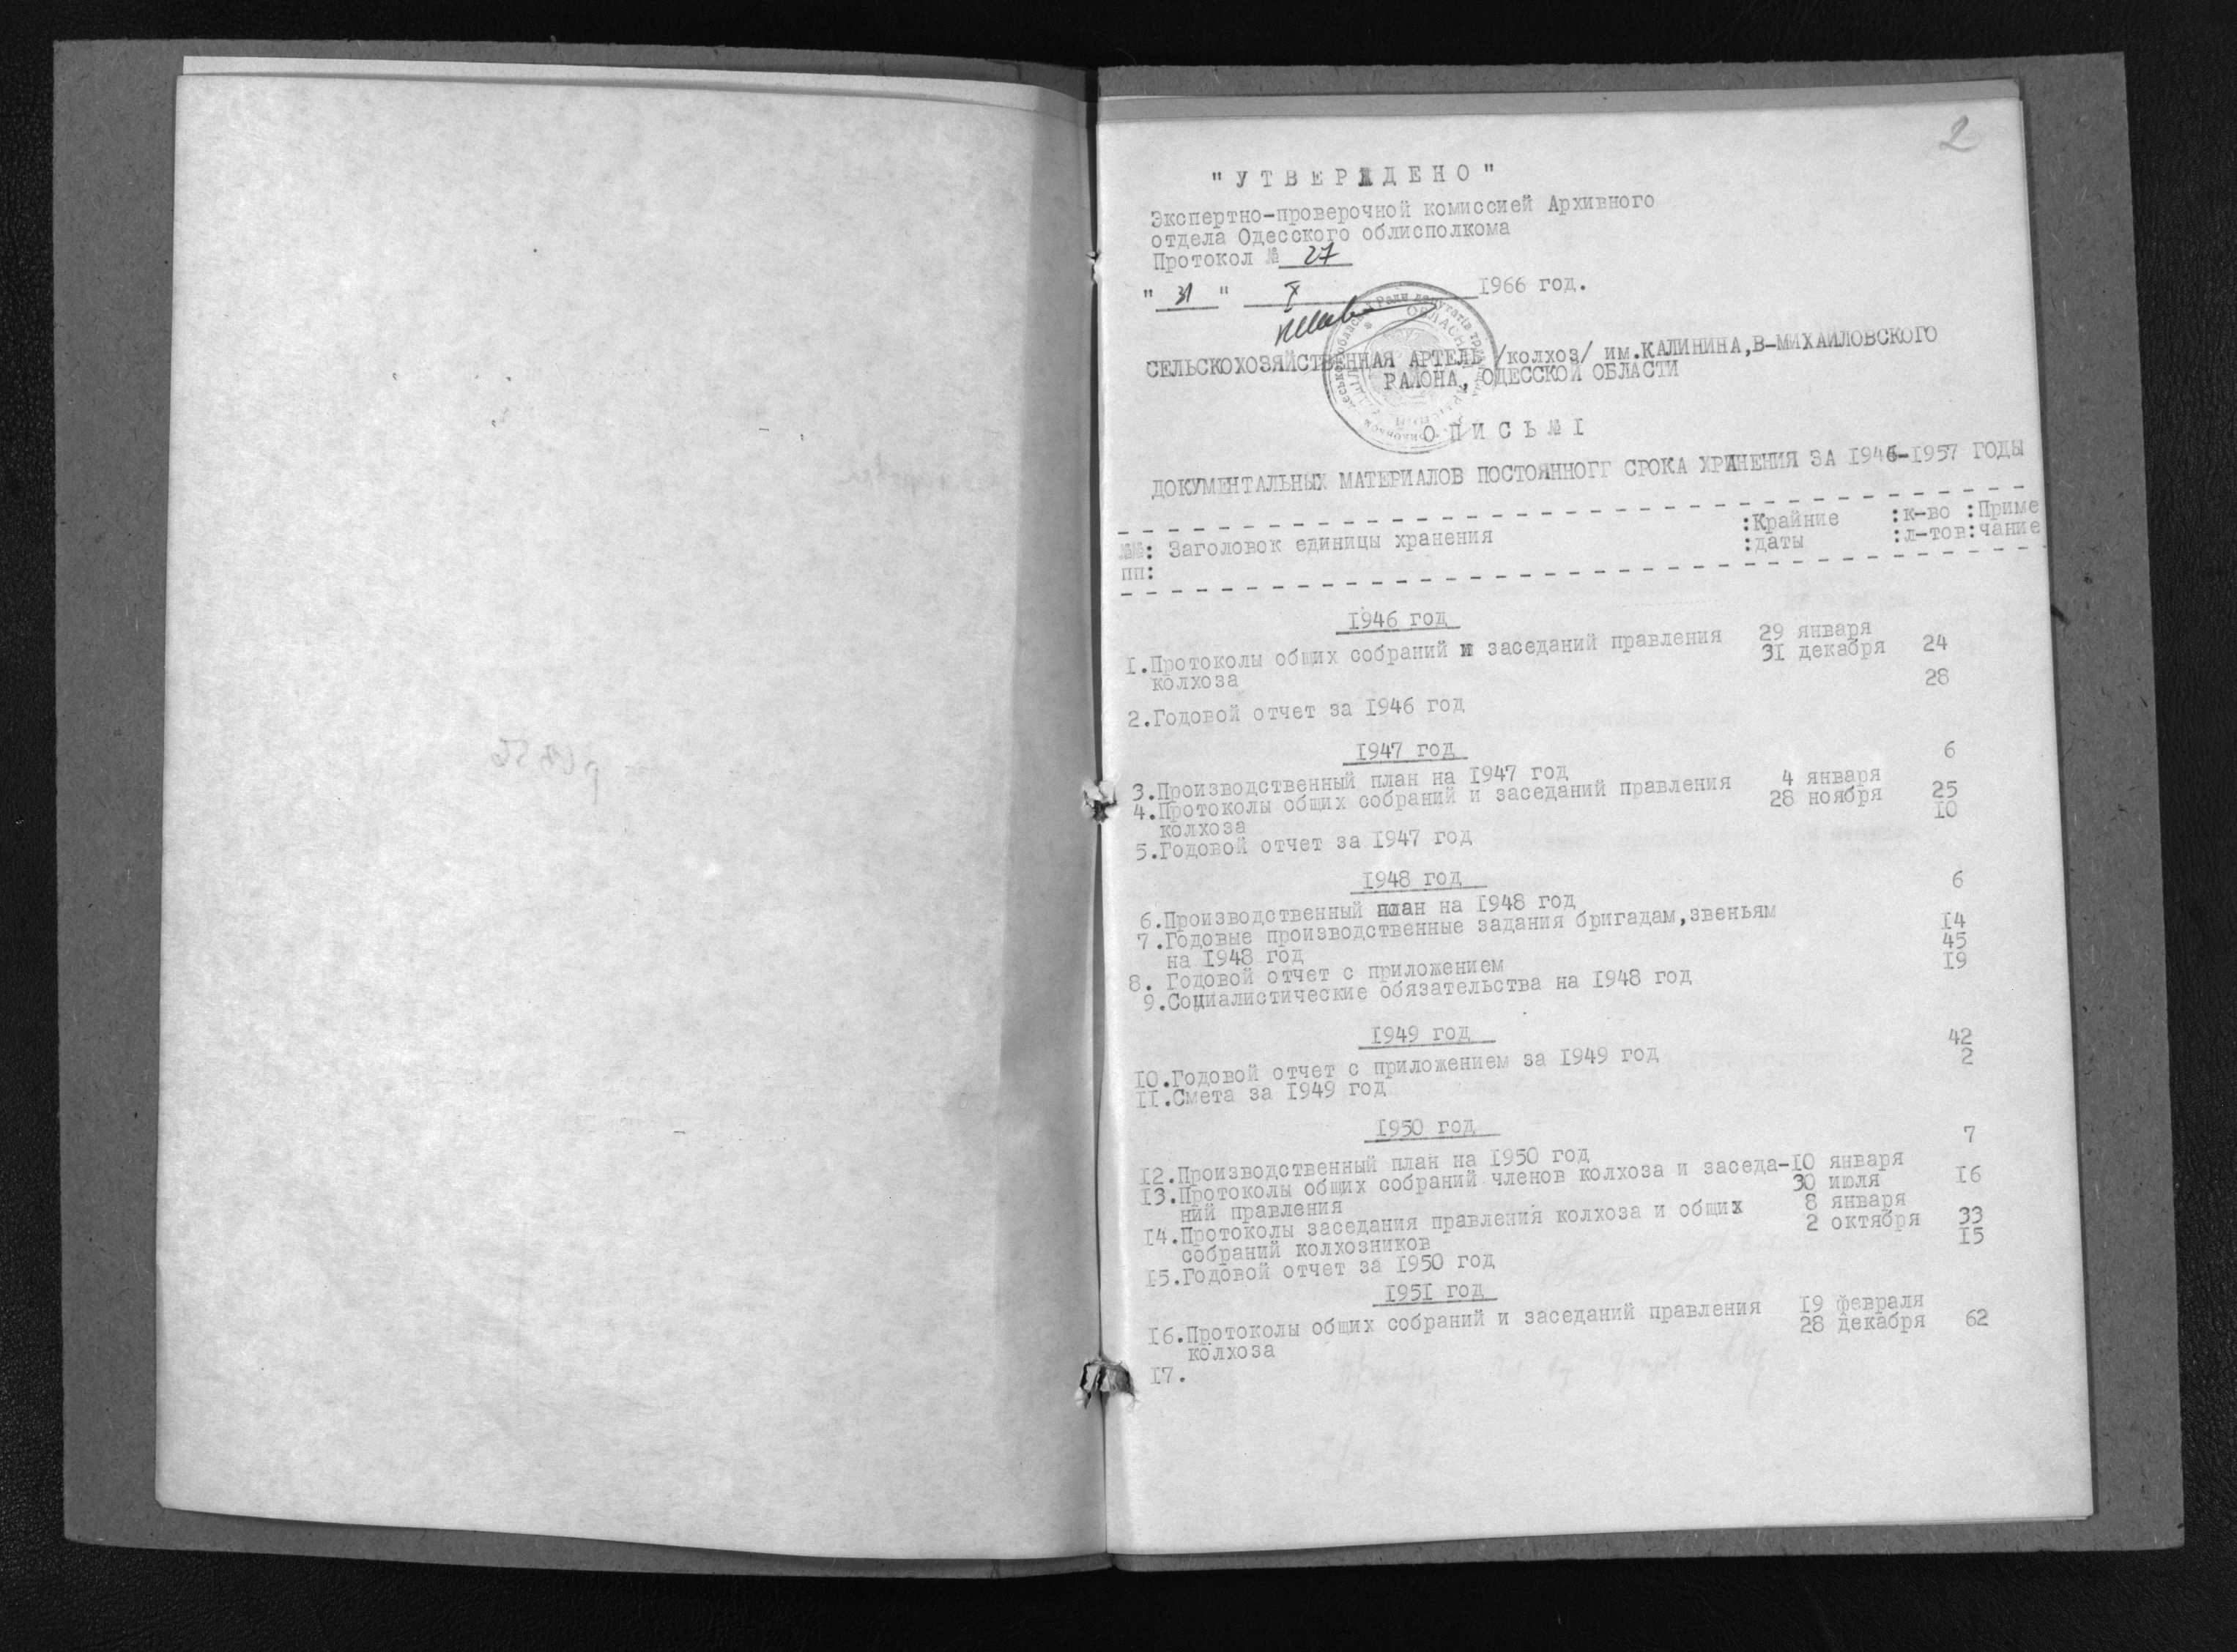 2
"УТВЕРЖДЕНО"
Экспертно-проверочной комиссией Архивного
отдела Одесского облисполкома
Протокол № 27
" 31 " X 1966 год.
СЕЛЬСКОХОЗЯЙСТВЕННАЯ АРТЕЛЬ /колхоз/ им.КАЛИНИНА,В-МИХАЙЛОВСКОГО
РАЙОНА, ОДЕССКОЙ ОБЛАСТИ
ОПИСЬ №I
ДОКУМЕНТАЛЬНЫХ МАТЕРИАЛОВ ПОСТОЯННОГГ СРОКА ХРАНЕНИЯ ЗА 1946-1957 ГОДЫ
№№: Заголовок единицы хранения :Крайние :к-во :Приме
пп: :даты :л-тов:чание
1946 год
I.Протоколы общих собраний и заседаний правления 29 января
колхоза 31 декабря 24
2.Годовой отчет за 1946 год 28
1947 год
3.Производственный план на 1947 год 6
4.Протоколы общих собраний и заседаний правления 4 января
колхоза 28 ноября 25
5.Годовой отчет за 1947 год 10
1948 год
6.Производственный план на 1948 год 6
7.Годовые производственные задания бригадам,звеньям
на 1948 год 14
8. Годовой отчет с приложением 45
9.Социалистические обязательства на 1948 год 19
1949 год
10.Годовой отчет с приложением за 1949 год 42
II.Смета за 1949 год 2
1950 год
12.Производственный план на 1950 год 7
13.Протоколы общих собраний членов колхоза и заседа-10 января
ний правления 30 июля 16
14.Протоколы заседания правления колхоза и общих 8 января
собраний колхозников 2 октября 33
15.Годовой отчет за 1950 год 15
1951 год
16.Протоколы общих собраний и заседаний правления 19 февраля
колхоза 28 декабря 62
17.